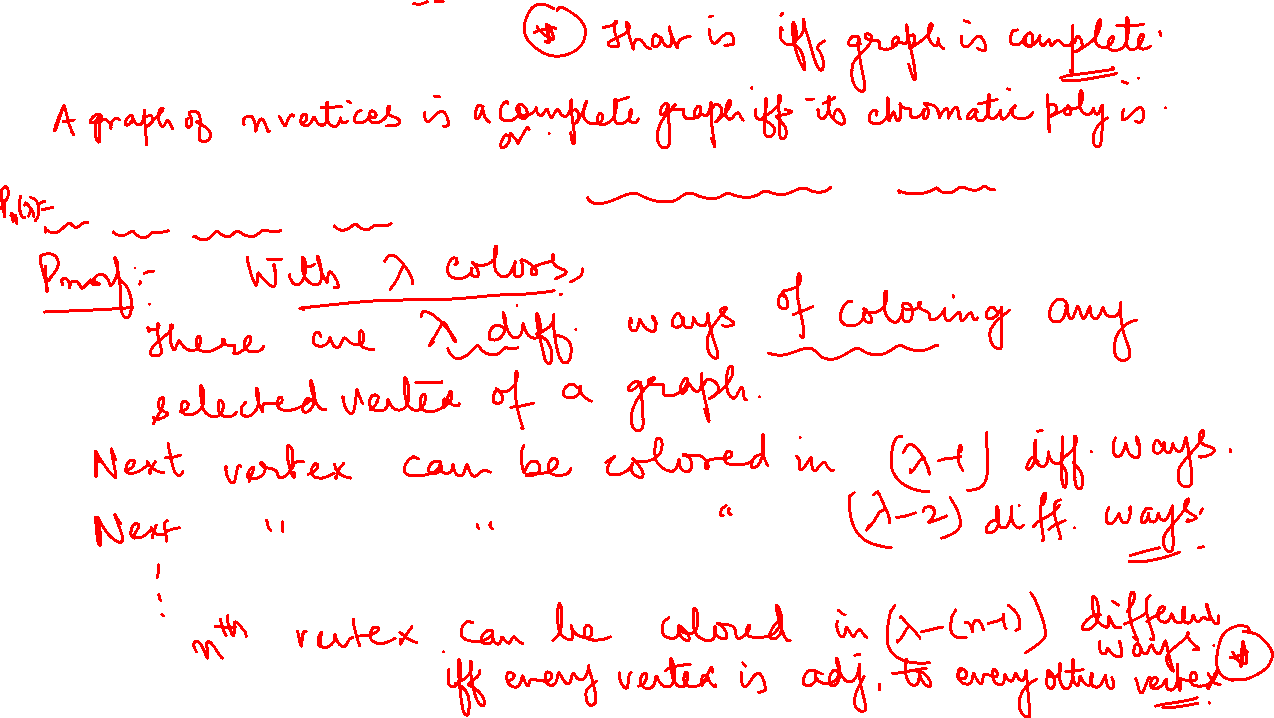 That is iff graph is complete.
A graph of n vertices is a complete graph iff its chromatic poly is
or.
Pn(λ)=
Proof:- With λ colors,
There are λ diff. ways of coloring any
selected vertex of a graph.
Next vertex can be colored in (λ-1) diff. ways.
Next " " " (λ-2) diff. ways.
nth vertex can be colored in (λ-(n-1)) different
ways.
iff every vertex is adj. to every other vertex